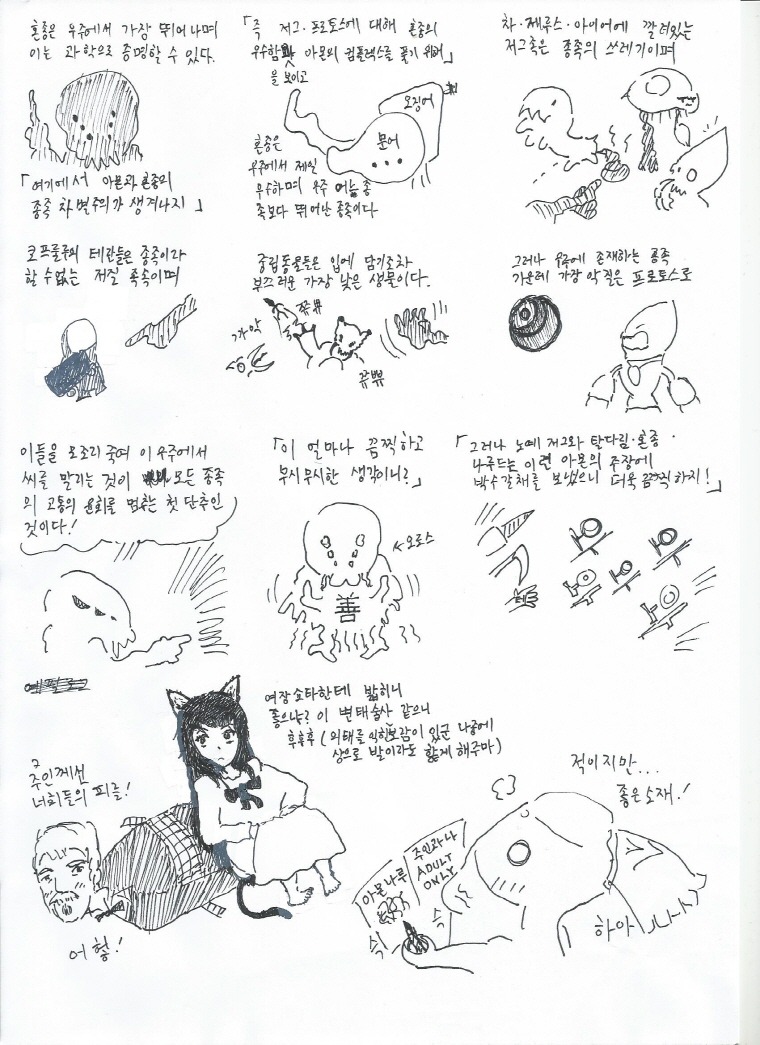 혼종은 우주에서 가장 뛰어나며
이는 과학으로 증명할 수 있다.
「여기에서 아몬과 혼종의
종족 차별주의가 생겨나지」
「즉 저그·프로토스에 대해 혼종의
우수함을 보이고 아몬의 컴플렉스를 풀기 위해」
오징어
문어
혼종은
우주에서 제일
우수하며 우주 어느 종
족보다 뛰어난 종족이다
차·제루스·아이어에 깔려있는
저그족은 종족의 쓰레기이며
코프룰루의 테란들은 종족이라
할 수 없는 저질 족속이며
중립동물들은 입에 담기조차
부끄러운 가장 낮은 생물이다.
뀨쀼
까악
뀨쀼
그러나 우주에 존재하는 종족
가운데 가장 악질은 프로토스로
이들을 모조리 죽여 이 우주에서
씨를 말리는 것이 모든 종족
의 고통의 윤회를 멈추는 첫 단추인
것이다!
「이 얼마나 끔찍하고
무시무시한 생각이니?」
오로스
善
「그러나 노예 저그와 탈다림·혼종·
나루드는 이런 아몬의 주장에
박수갈채를 보냈으니 더욱 끔찍하지!」
여장쇼타한테 밟히니
좋으냐? 이 변태술사 같으니
후후후 (의태를 익힌 보람이 있군 나중에
상으로 발이라도 핥게 해주마)
주인께선
너희들의 피를!
어헣!
적이지만...
좋은 소재!
아몬나루
주인과 나
ADULT
ONLY
슥
슥
하아